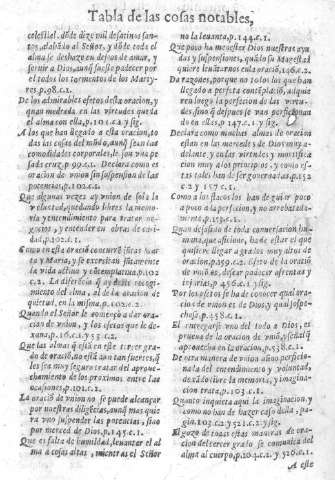 Tabla de las cosas notables,
celestiel. dõde dize mil desatinos san-
tos, alabãdo al Señor, y dõde todo el
alma se deshaze en deseos de amar, y
seruir a Dios, aunq̃ fuesse padecer por
el todos los tormentos de los Marty-
res. p.98.c.1.
De los admirables efetos desta oracion, y
quan medrada en las virtudes queda
el alma con ella, p. 101.c.2 y sig.
A los que han llegado a esta oracion, to-
das las cosas del mũdo, aunq̃ sean las
comodidades corporales, le son vna pe-
sada cruz, p. 99.c.1. Declara como es
oracion de vniõn sin suspension de las
potencias, p.102.c.1.
Que algunas vezes ay vnion de sola la
volũtad, quedando libres la memo-
ria y entendimiento para tratar ne-
gocios, y entender en obras de cari-
dad, p.102.c.1.
Como en esta oraciõ concurrẽ jũtas Mar-
ta y Maria, y se exercitan jũtamente
la vida actiua y cõtemplatiua, p.102
c.2. La diferencia q̃ ay deste recogi-
miento del alma, al de la oracion de
quietud, en la misma, p.102.c.2.
Quando el Señor le començo a dar ora-
cion de vnion, y los efetos que le de-
xaua, p.16.c.1 y 55.c.2.
Que las almas q̃ estã en este tercer gra-
do de oraciõ, no estã aun tan fuertes, q̃
les sea muy seguro tratar del aproue-
chamiento de los proximos entre las
ocasiones, p.101.c.1.
La oraciõ de vnion no se puede alcançar
por nuestras diligẽcias, aunq̃ mas quie
ra vno suspender las potencias, sino
por merced de Dios, p.145.c.1.
Que es falta de humildad, leuantar el al
ma a cosas altas, mientras el Señor
no la leuanta, p.144.c.1.
Que poco ha menester Dios nuestras ayu
das y suspensiones, quãdo su Magestad
quiere leuãtarnos a alta oraciõ, 146.c.2.
Da razones, porque no todos los que han
llegado a perfeta contẽplaciõ, adquie
ren luego la perfecion de las virtu-
des, sino q̃ despues se van perficionan
do en ellas, p.147.c.1. y sig.
Declara como muchas almas de oracion
estan en las mercedes de Dios muy a-
delante, y en las virtudes y mortifica
cion muy a los principios. y como es-
tas tales han de ser gouernadas, p.152
c.2 y 157 c.1.
Como a los flacos los han de guiar poco
a poco a la perfecion, y no arrebatada-
mente, p.153.c.1.
Quan desasido de toda la conuersacion hu-
mana, que aficione, ha de estar el que
quisiere llegar a grados muy altos de
oracion, p.159.c.2. Efetos de la oraciõ
de vniõ es, desear padecer afrentas y
injurias. p.456.c.1 y sig.
Por los efetos se ha de conocer qual ora-
ciõ es de vniones de Dios, y qual sospe-
chosa. p.458.c.1.
El entregarse vno del todo a Dios, es
prueua de la oracion de vniõ, y señal q̃
aprouecha en la oracion, p.583.c.1.
De otra manera de vniõ aũ no perficio-
nada del entendimiento y volũtad,
dexãdo libre la memoria, y imaginacion
cion trata, p.103.c.1.
Quanto inquieta aqui la imaginacion, y
como no han de hazer caso della, pa-
gin. 103.c.2 y 521.c.2 y sig.
El gozo de todas estas maneras de ora-
cion del tercer grado se comunica del
alma al cuerpo, p.104.c.1. y 326.c.1.
A este